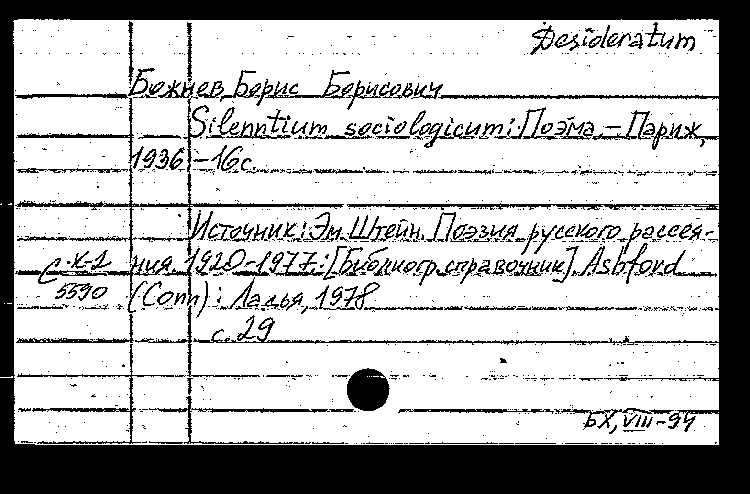 Desideratum
Божнев, Борис Борисович
Silenntium sociologicum: Поэма. – Париж,
1936. – 16 с.
Источник: Эм. Штейн. Поэзия русского рассея-
ния. 1920–1977: [Библиогр. справочник]. Ashford
(Conn): Ладья, 1978
с. 29
С·К-1
5590
БХ, VIII-94